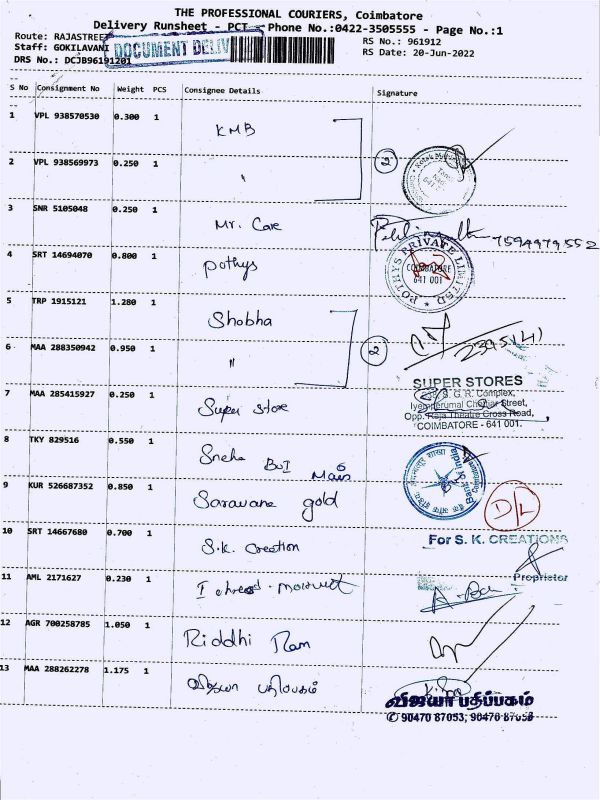 THE PROFESSIONAL COURIERS, Coimbatore
Delivery Runsheet - PCT - Phone No.:0422-3505555 - Page No.:1
Route: RAJASTREET
RS No.: 961912
Staff: GOKILAVANI
DOCUMENT DELIV
RS Date: 20-Jun-2022
DRS No.: DCJB96191201
S No Consignment No Weight PCS Consignee Details Signature
1 VPL 938570530 0.300 1 KMB
2 VPL 938569973 0.250 1 " 2
3 SNR 5105048 0.250 1 Mr. Care 7594979552
4 SRT 14694070 0.800 1 pothys
POTHYS PRIVATE LIMITED
COIMBATORE
641 001
5 TRP 1915121 1.280 1 Shobha
6 MAA 288350942 0.950 1 " 2 2395141
7 MAA 285415927 0.250 1 Super Store
SUPER STORES
S. G. R. Complex,
Iyemperumal Chettiar Street,
Opp. Raja Theatre Cross Road,
COIMBATORE - 641 001.
8 TKY 829516 0.550 1 Sneha BOI Main
Bank of India
9 KUR 526687352 0.850 1 Saravana gold D/L
10 SRT 14667680 0.700 1 S.K. Creation
For S. K. CREATIONS
Proprietor
11 AML 2171627 0.230 1
12 AGR 700258785 1.050 1 Riddhi Ram
13 MAA 288262278 1.175 1 விஜயா பதிப்பகம்
விஜயா பதிப்பகம்
✆ 90470 87053, 90470 87058